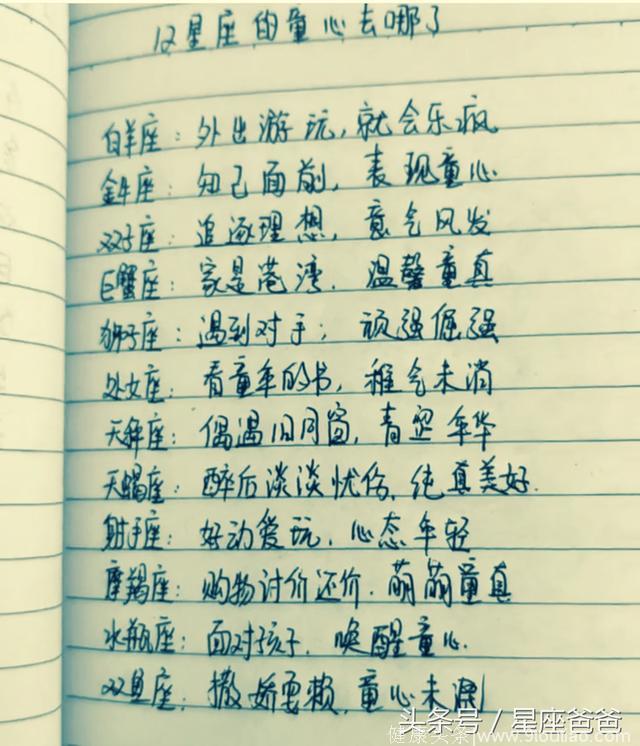 12星座的童心去哪了
白羊座：外出游玩，就会乐疯
金牛座：知己面前，表现童心
双子座：追逐理想，意气风发
巨蟹座：家是港湾，温馨童真
狮子座：遇到对手；顽强倔强
处女座：看童年的书，稚气未消
天秤座：偶遇旧同窗，青涩年华
天蝎座：醉后淡淡忧伤，纯真美好.
射手座：好动爱玩，心态年轻
摩羯座：购物讨价还价.萌萌童真
水瓶座：面对孩子，唤醒童心.
双鱼座：撒娇耍赖，童心未泯
头条号／星座爸爸
健康头条 www.910diao.com